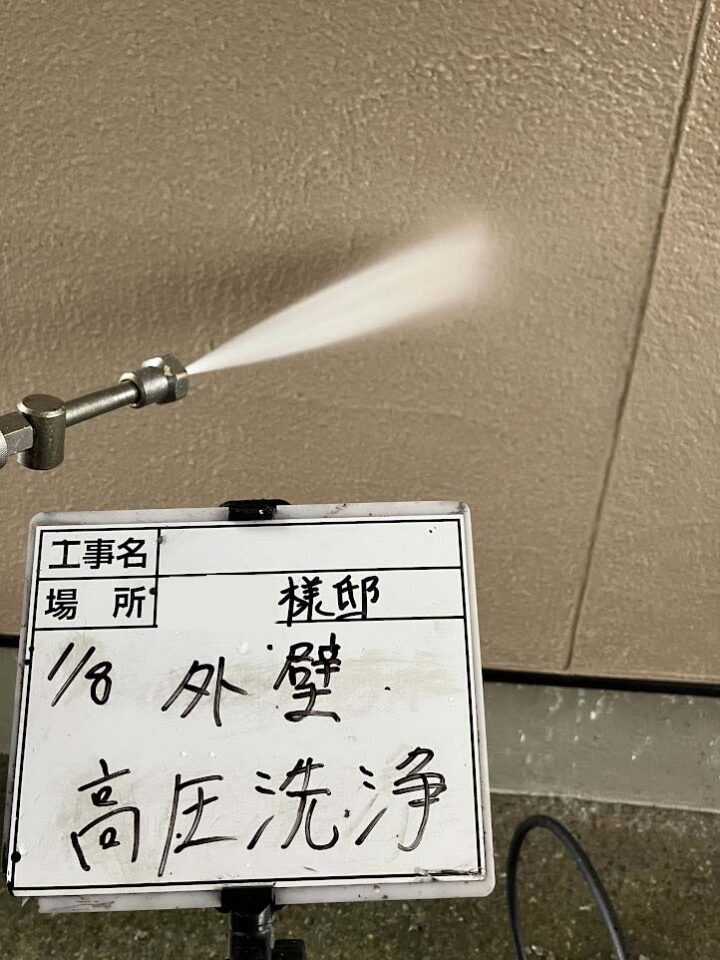 工事名
場所 様邸
1/8 外壁
高圧洗浄